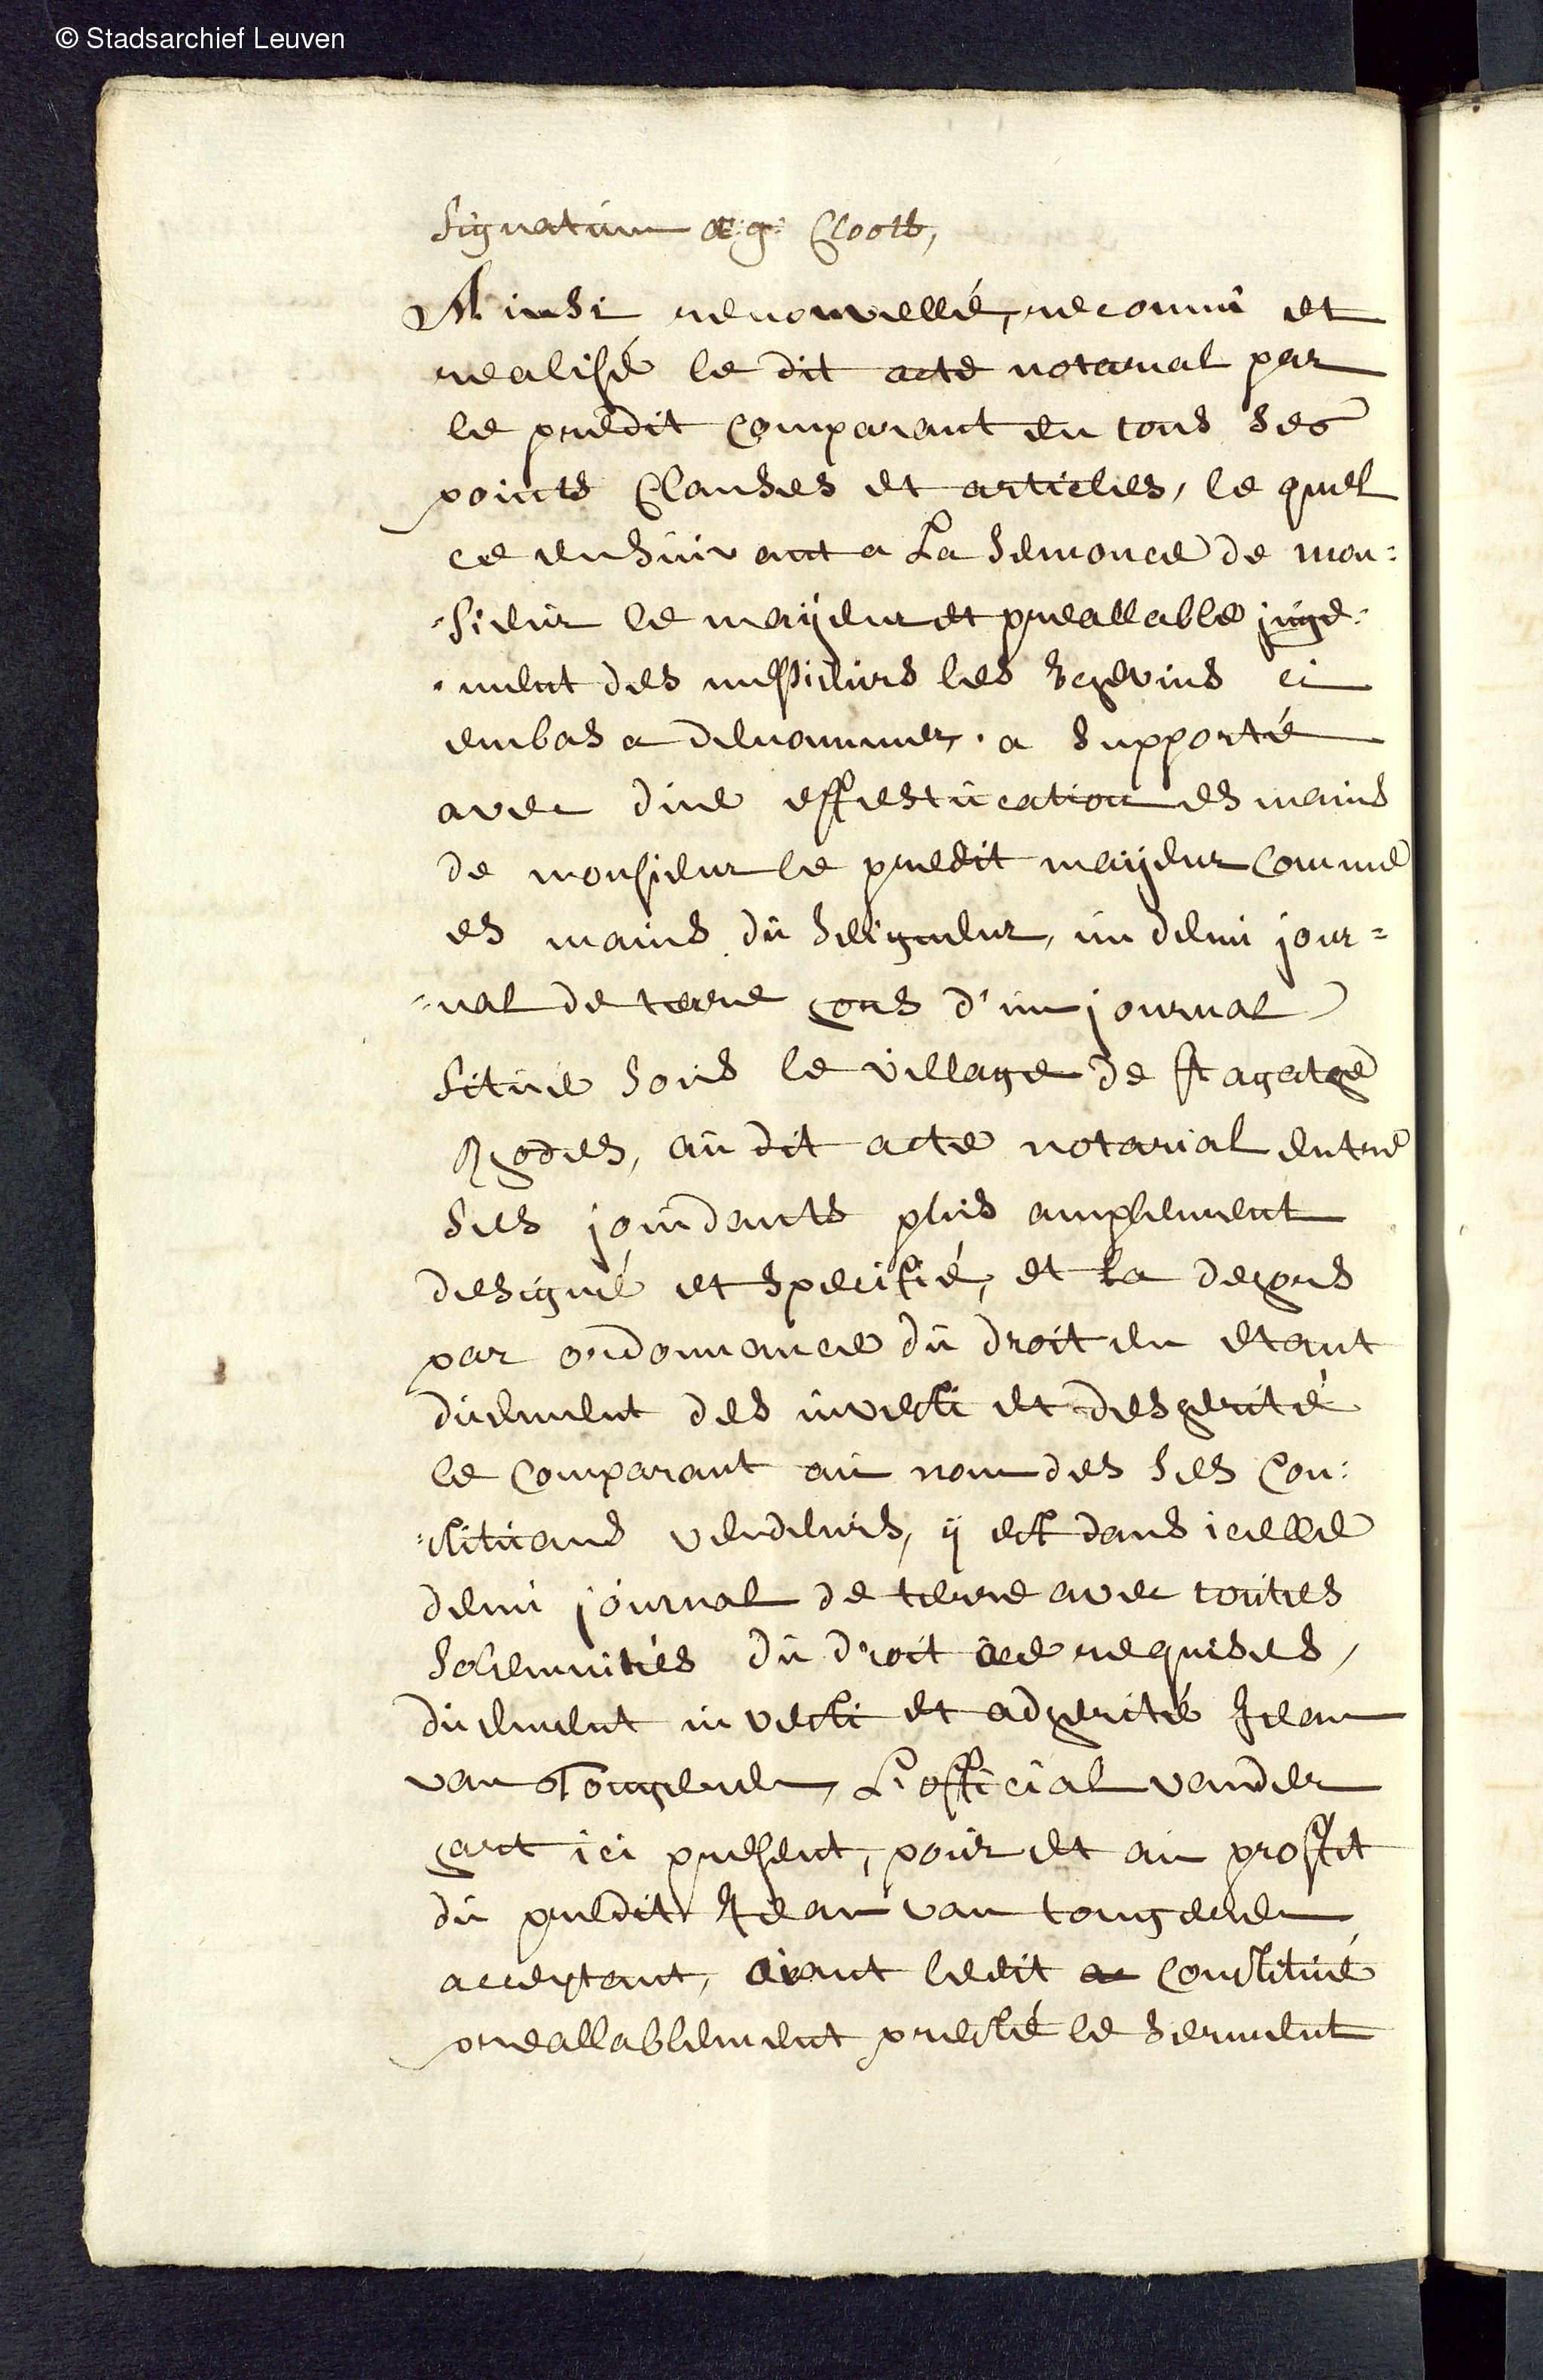 © Stadsarchief Leuven
Signatum Æg: Cloots,
Ainsi renouvellé, reconnû et
realisé le dit acte notarial par
le prédit Comparant en tous ses
points Clauses et articles, le quel
ce ensûivant a La semonce de mon:
:sieûr le maÿeur et preallable jûge:
:ment des messieûrs les Echevins ci
embas a denommer, a supporté
avec dûe effestûcation es mains
de monsieur le predit maÿeur Comme
es mains dû Seigneur, ûn demi jour=
=nal de terre hors d'ûn journal
sitûé soûs le village de St agathe
Rhodes, aû dit acte notarial entre
ses joindants plûs amplement
designé et specifié, et la dehors
par ordonnance dû droit en etant
dûement des investi et desherité
le Comparant aû nom des ses Con:
:stitûans vendeûrs, ÿ est dans icelle
demi joûrnal de terre avec toûtes
solemnités dû droit ace requises,
dûement investi et adherité Jean
van Tongeren, L'official vander
hart ici present, poûr et aû profit
dû predit Jean van tongeren
acceptant, aiant ledit Constitûé
preallablement presté le serment